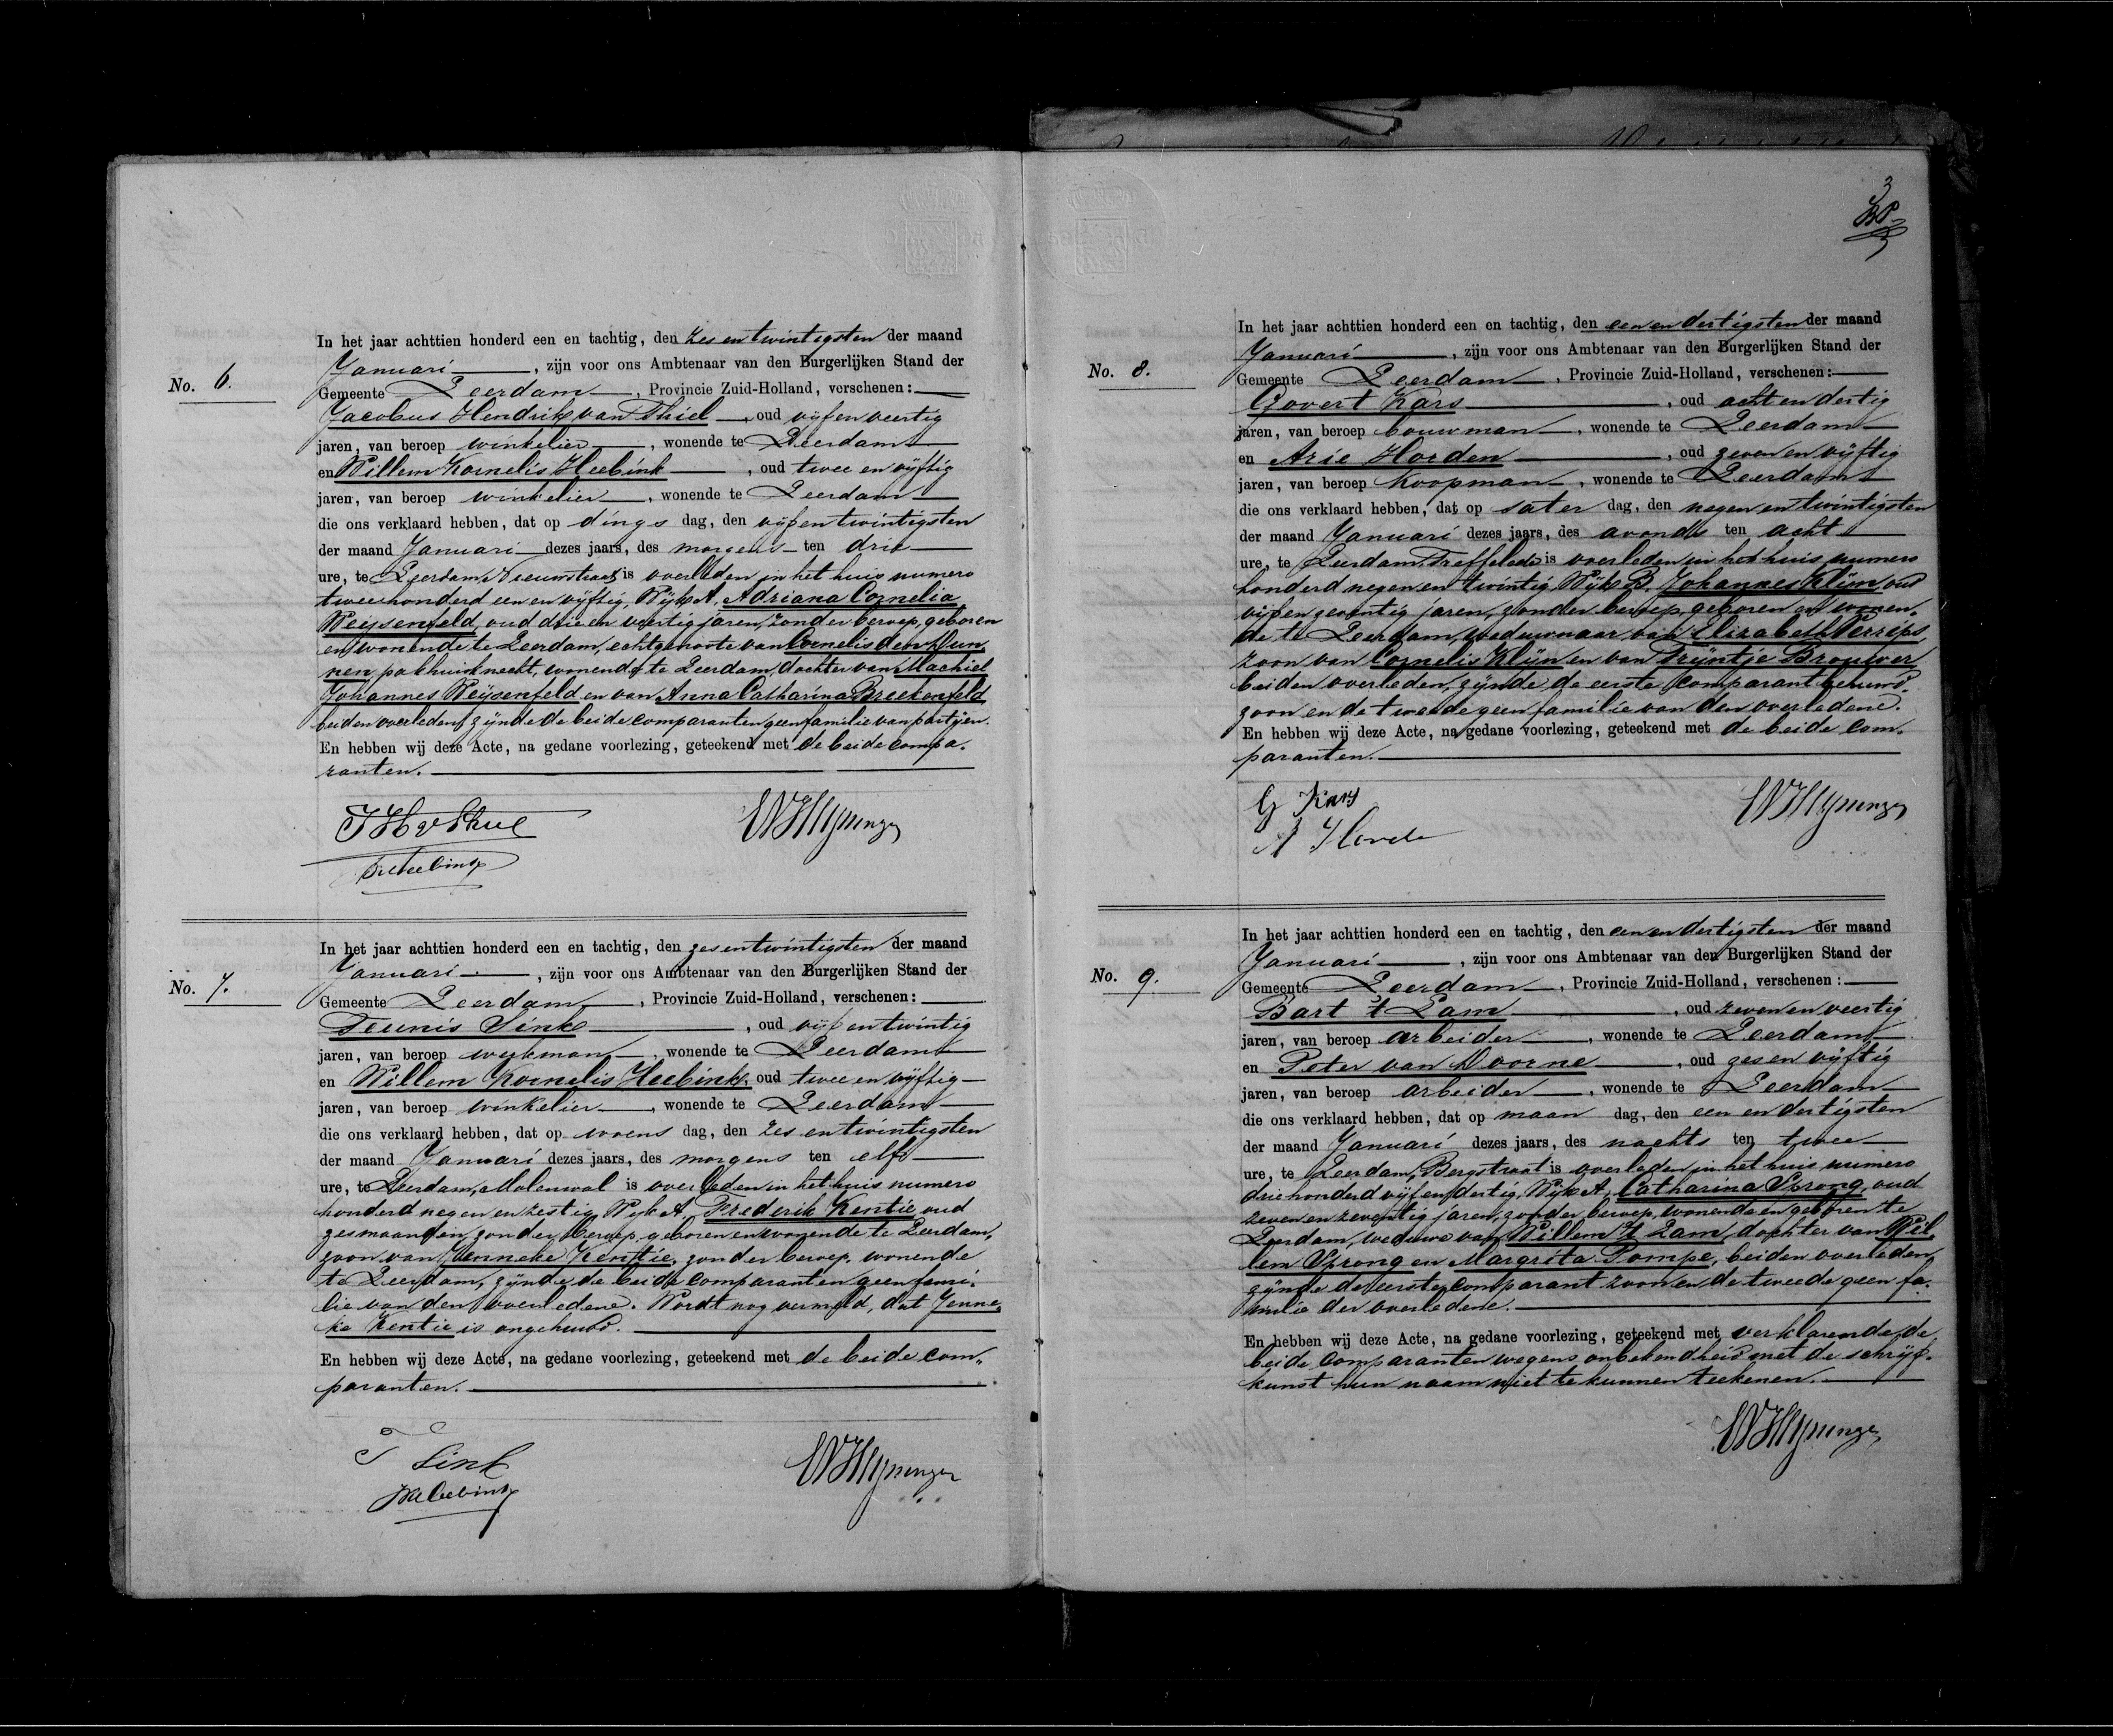 No. 6.
In het jaar achttien honderd een en tachtig, den zes en twintigsten der maand
Januari, zijn voor ons Ambtenaar van den Burgerlijken Stand der
Gemeente Leerdam, Provincie Zuid-Holland, verschenen:
Jacobus Hendrik van Thiel, oud vijf en veertig
jaren, van beroep winkelier, wonende te Leerdam
en Willem Kornelis Heebink, oud twee en vijftig
jaren, van beroep winkelier, wonende te Leerdam
die ons verklaard hebben, dat op dings dag, den vijf en twintigsten
der maand Januari dezes jaars, des morgens ten drie
ure, te Leerdam, Nieuwstraat is overleden in het huis numero
twee honderd een en vijftig, Wijk A, Adriana Cornelia
Weijsenfeld, oud drie en veertig jaren, zonder beroep, geboren
en wonende te Leerdam, echtgenoote van Cornelis den Dun-
nen, pakhuisknecht, wonende te Leerdam, dochter van Machiel
Johannes Weijsenfeld en van Anna Catharina Breekenfeld,
beiden overleden, zijnde de beide comparanten geen familie van partijen.
En hebben wij deze Acte, na gedane voorlezing, geteekend met de beide compa-
ranten.
J H v Thiel
WK Heebink
No. 7.
In het jaar achttien honderd een en tachtig, den zes en twintigsten der maand
Januari, zijn voor ons Ambtenaar van den Burgerlijken Stand der
Gemeente Leerdam, Provincie Zuid-Holland, verschenen:
Teunis Sink, oud vijf en twintig
jaren, van beroep werkman, wonende te Leerdam
en Willem Kornelis Heebink, oud twee en vijftig
jaren, van beroep winkelier, wonende te Leerdam
die ons verklaard hebben, dat op woens dag, den zes en twintigsten
der maand Januari dezes jaars, des morgens ten elf
ure, te Leerdam, Molenwal is overleden in het huis numero
honderd negen en zestig Wijk A, Frederik Kentie, oud
zes maanden, zonder beroep, geboren en wonende te Leerdam,
zoon van Jenneke Kentie, zonder beroep, wonende
te Leerdam, zijnde de beide comparanten geen fami-
lie van den overledene. Wordt nog vermeld, dat Jenne-
ke Kentie is ongehuwd.
En hebben wij deze Acte, na gedane voorlezing, geteekend met de beide com-
paranten.
T Sink
WK Heebink
3
No. 8.
In het jaar achttien honderd een en tachtig, den een en dertigsten der maand
Januari, zijn voor ons Ambtenaar van den Burgerlijken Stand der
Gemeente Leerdam, Provincie Zuid-Holland, verschenen:
Govert Kars, oud acht en dertig
jaren, van beroep bouwman, wonende te Leerdam
en Arie Horden, oud zeven en vijftig
jaren, van beroep Koopman, wonende te Leerdam
die ons verklaard hebben, dat op zater dag, den negen en twintigsten
der maand Januari dezes jaars, des avonds ten acht
ure, te Leerdam, is overleden in het huis numero
honderd negen en twintig Wijk B, Johannes Klijn, oud
vijf en zeventig jaren, zonder beroep, geboren en wonen-
de te Leerdam, weduwnaar van Elizabeth Verrips,
zoon van Cornelis Klijn en van Trijntje Brouwer,
beiden overleden, zijnde de eerste comparant behuwd-
zoon en de tweede geen familie van den overledene.
En hebben wij deze Acte, na gedane voorlezing, geteekend met de beide com-
paranten.
G Kars
A Horde
No. 9.
In het jaar achttien honderd een en tachtig, den een en dertigsten der maand
Januari, zijn voor ons Ambtenaar van den Burgerlijken Stand der
Gemeente Leerdam, Provincie Zuid-Holland, verschenen:
Bart 't Lam, oud zeven en veertig
jaren, van beroep arbeider, wonende te Leerdam
en Peter van Doorne, oud zes en vijftig
jaren, van beroep arbeider, wonende te Leerdam
die ons verklaard hebben, dat op maan dag, den een en dertigsten
der maand Januari dezes jaars, des nachts ten twee
ure, te Leerdam, Bergstraat is overleden in het huis numero
drie honderd vijf en dertig, Wijk A, Catharina Sprong, oud
zeven en zeventig jaren, zonder beroep, wonende en geboren te
Leerdam, weduwe van Willem 't Lam, dochter van Wil-
lem Sprong en Margrita Pompe, beiden overleden,
zijnde de eerste comparant zoon en de tweede geen fa-
milie der overledene.
En hebben wij deze Acte, na gedane voorlezing, geteekend met verklarende de
beide comparanten wegens onbekendheid met de schrijf-
kunst hun naam niet te kunnen teekenen.